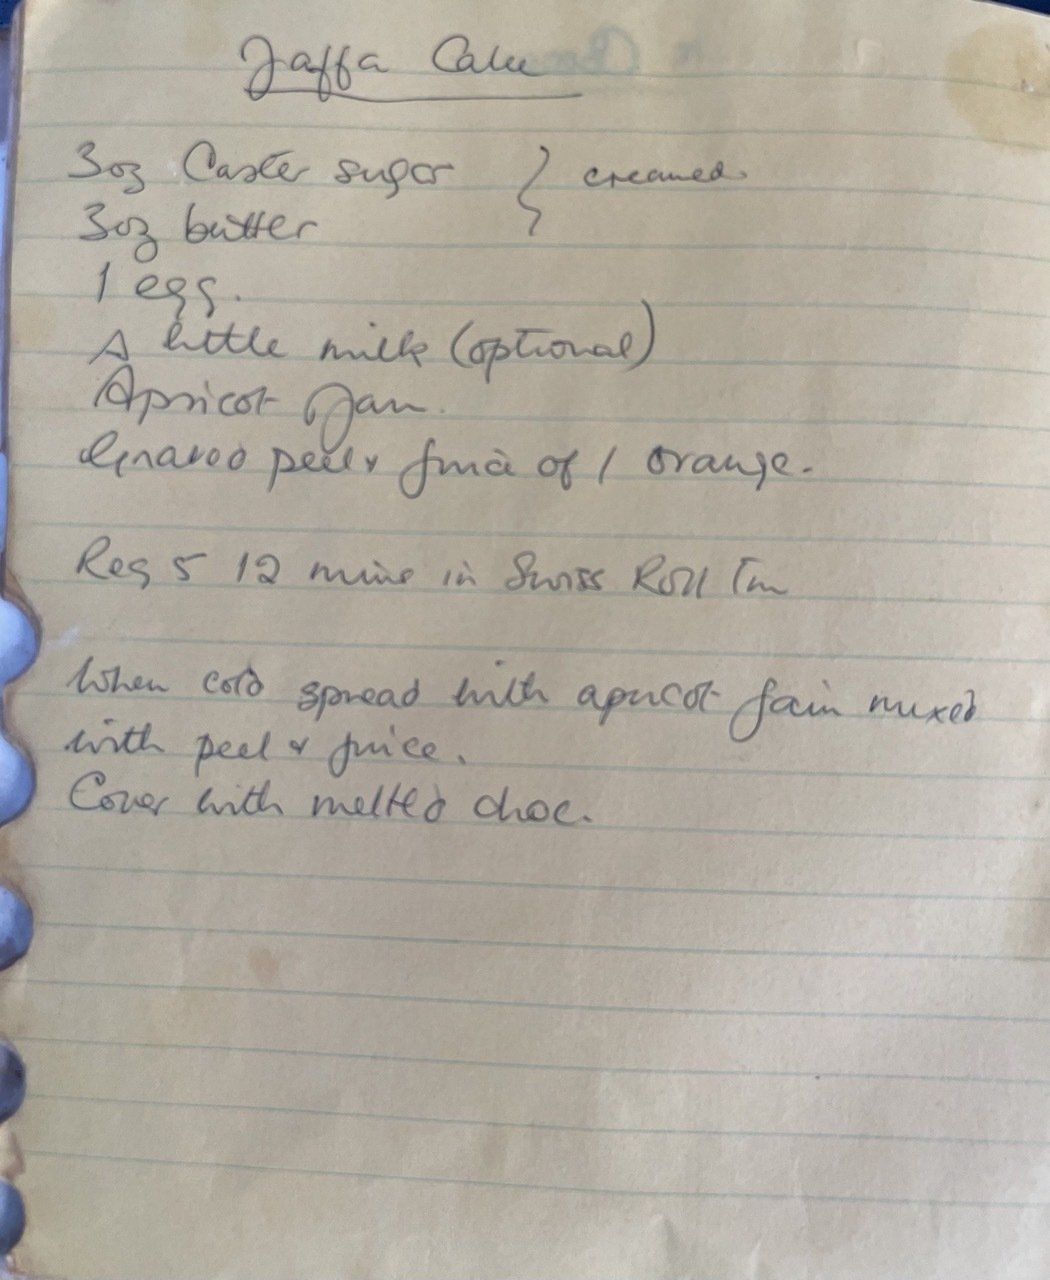 Jaffa Cake
3oz Caster sugar } creamed.
3oz butter
1 egg.
A little milk (optional)
Apricot Jam.
Grated peel & juice of 1 orange.
Reg 5 12 mins in Swiss Roll Tin
When cold spread with apricot jam mixed
with peel & juice.
Cover with melted choc.